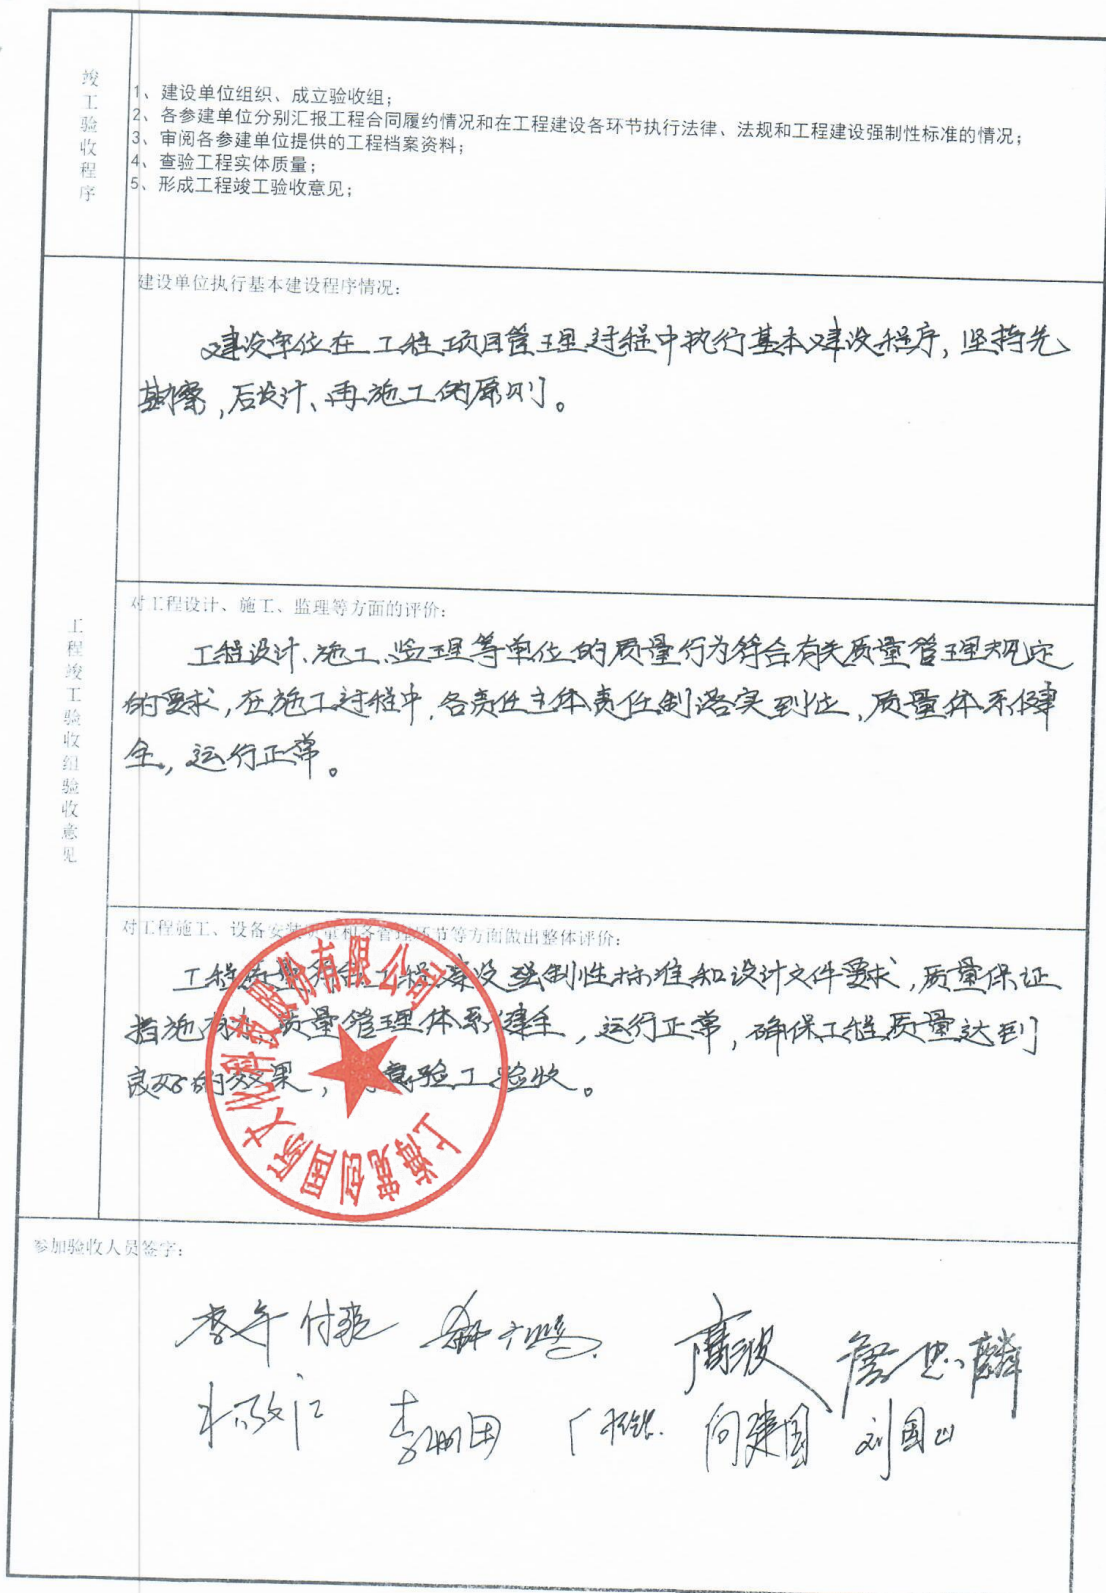 竣工验收程序
1、建设单位组织、成立验收组；
2、各参建单位分别汇报工程合同履约情况和在工程建设各环节执行法律、法规和工程建设强制性标准的情况；
3、审阅各参建单位提供的工程档案资料；
4、查验工程实体质量；
5、形成工程竣工验收意见；
工程竣工验收组验收意见
建设单位执行基本建设程序情况：
建设单位在工程项目管理过程中执行基本建设程序，坚持先
勘察，后设计、再施工的原则。
对工程设计、施工、监理等方面的评价：
工程设计、施工、监理等单位的质量行为符合有关质量管理规定
的要求，在施工过程中，各责任主体责任制落实到位，质量体系健
全，运行正常。
对工程施工、设备安装质量和各管理环节等方面做出整体评价：
工程质量符合工程建设强制性标准和设计文件要求，质量保证
措施有效，质量管理体系健全，运行正常，确保工程质量达到
良好的效果，同意验工验收。
国际文化科技股份有限公司
参加验收人员签字：
付 高波 詹忠麟
向建国 刘国山